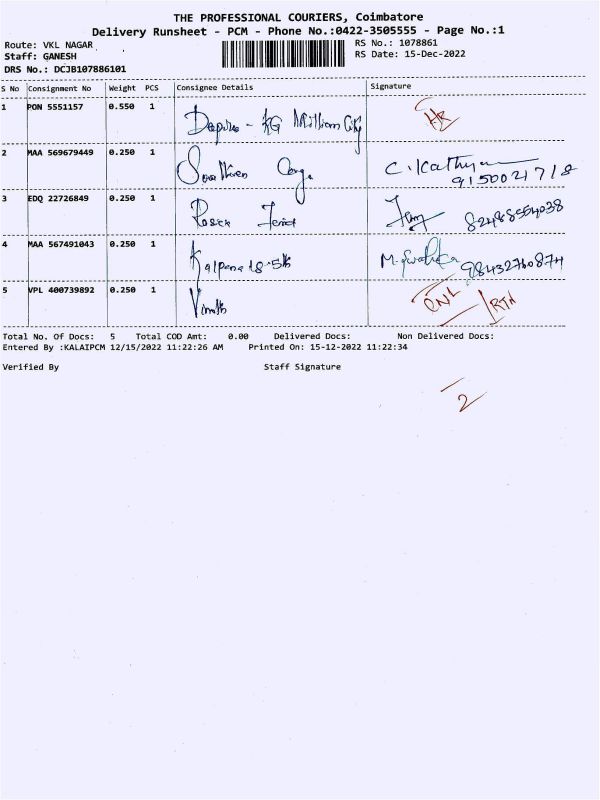 THE PROFESSIONAL COURIERS, Coimbatore
Delivery Runsheet - PCM - Phone No.:0422-3505555 - Page No.:1
Route: VKL NAGAR RS No.: 1078861
Staff: GANESH RS Date: 15-Dec-2022
DRS No.: DCJB107886101
S No Consignment No Weight PCS Consignee Details Signature
1 PON 5551157 0.550 1 - KG Million City
2 MAA 569679449 0.250 1 9150021718
3 EDQ 22726849 0.250 1 82488554038
4 MAA 567491043 0.250 1 Kalpana 18-5th 98432760874
5 VPL 400739892 0.250 1 Vinoth RTN
Total No. Of Docs: 5 Total COD Amt: 0.00 Delivered Docs: Non Delivered Docs:
Entered By :KALAIPCM 12/15/2022 11:22:26 AM Printed On: 15-12-2022 11:22:34
Verified By Staff Signature
2